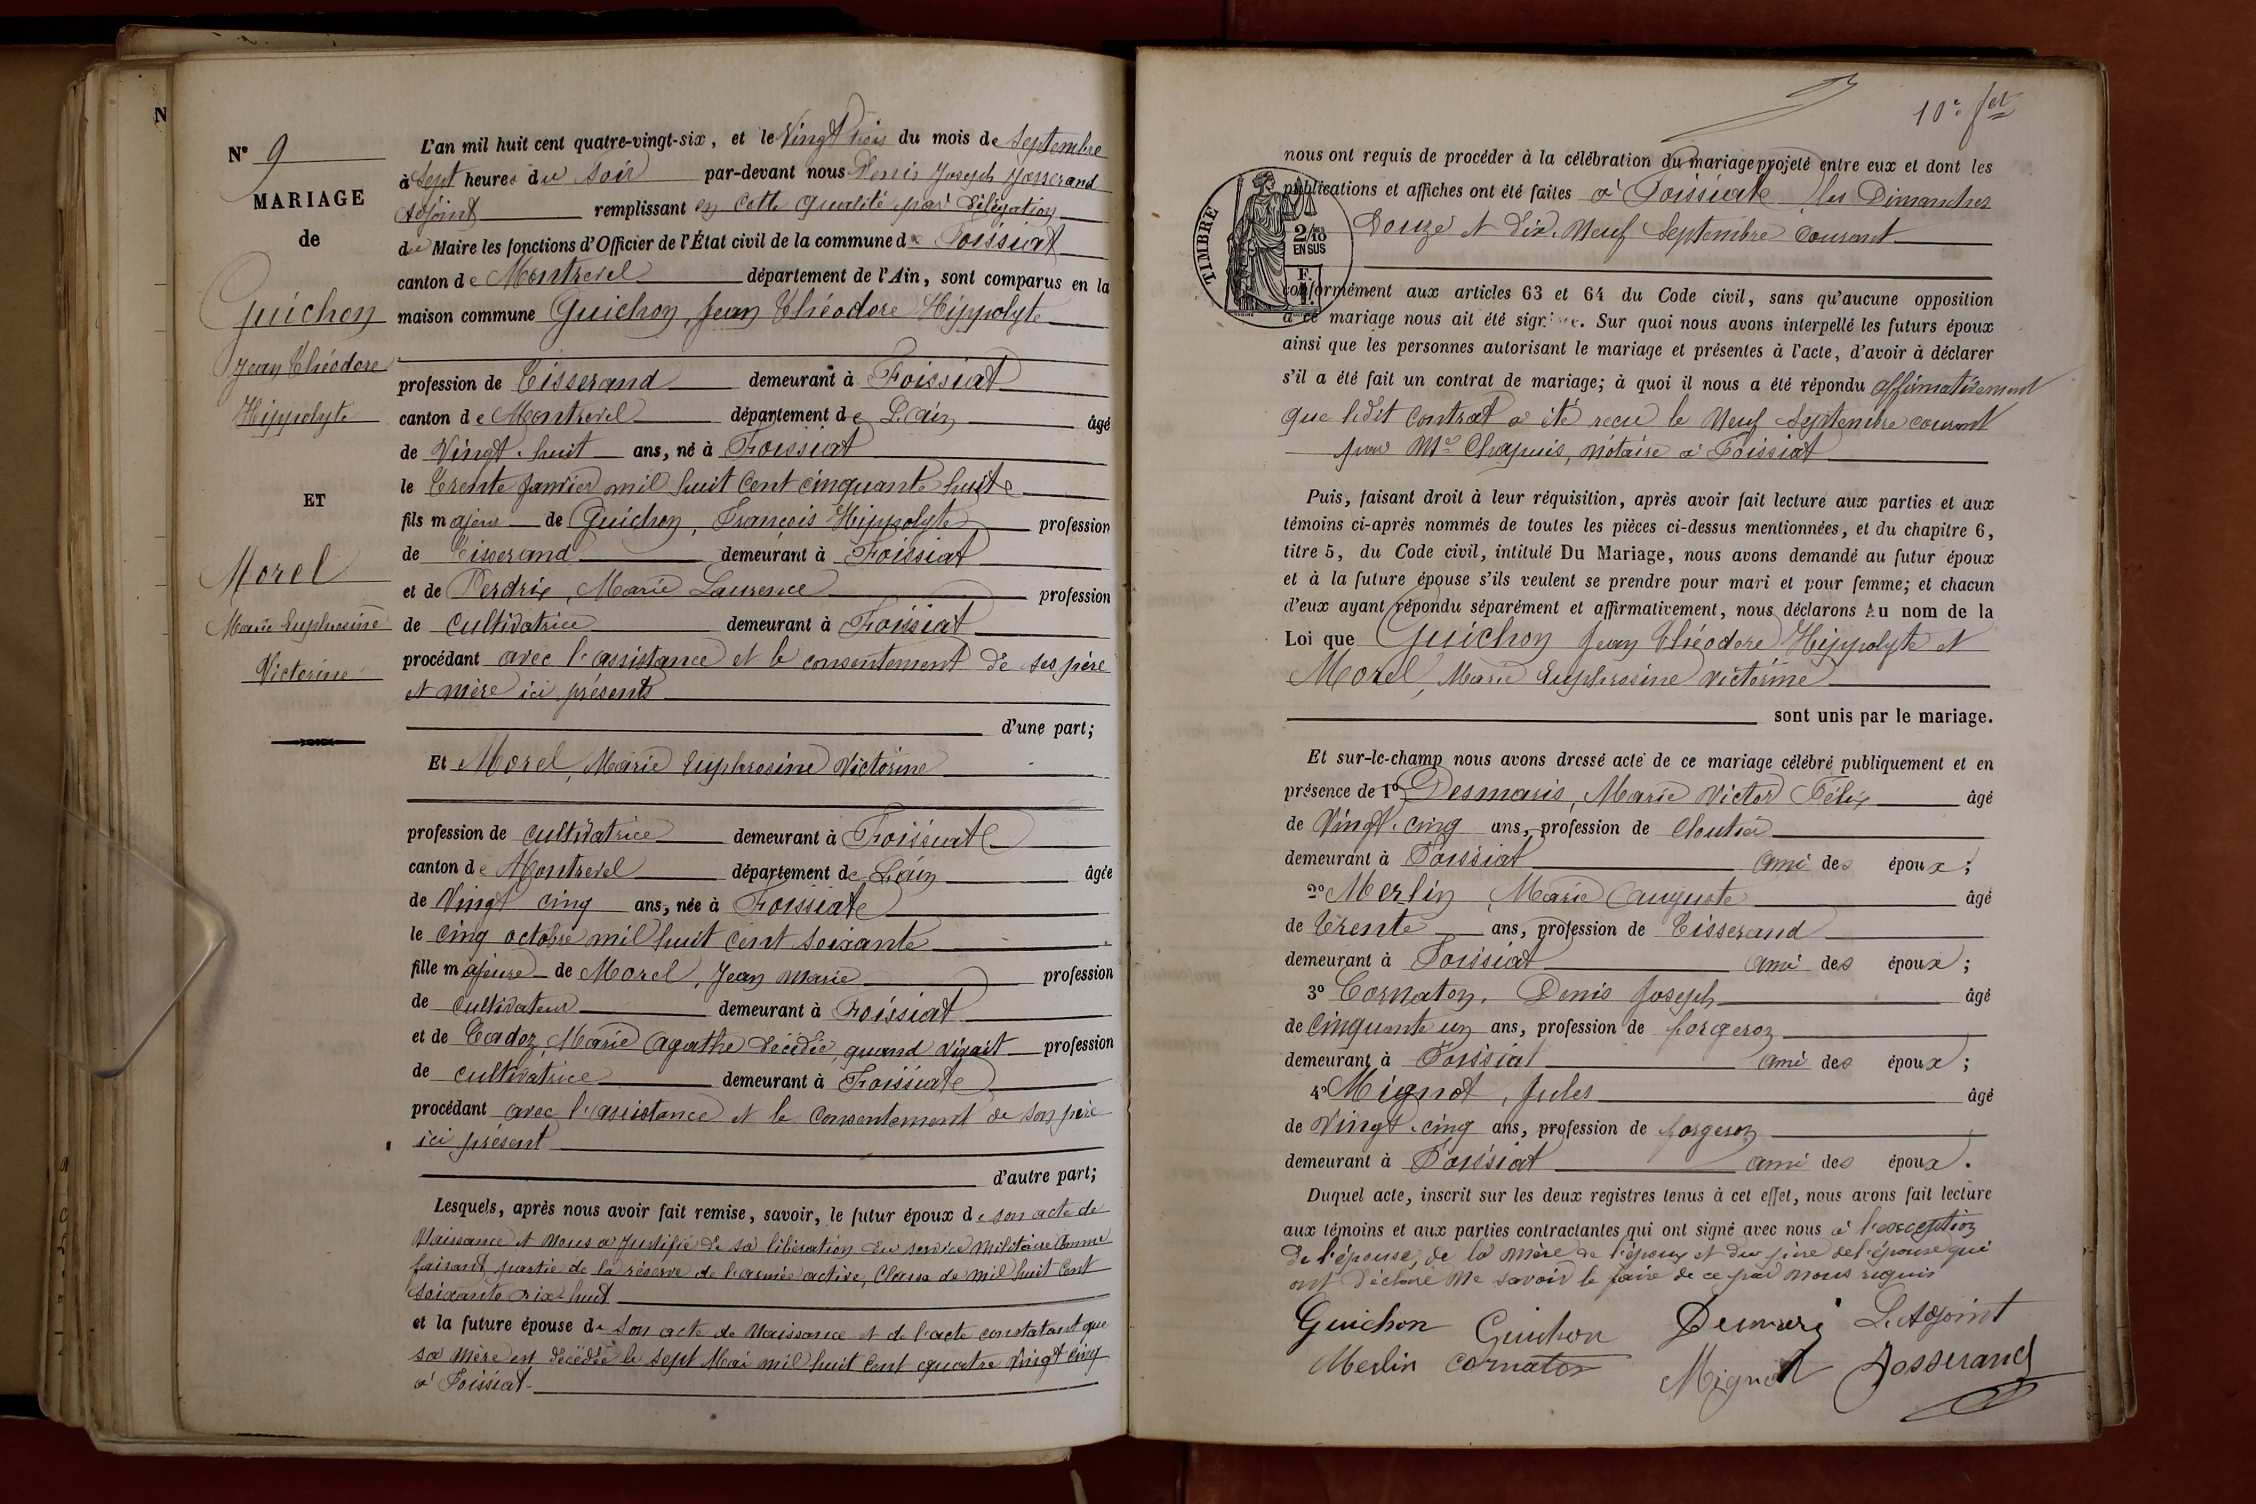 N° 9
MARIAGE
de
Guichon
Jean Théodore
Hippolyte
ET
Morel
Marie Euphrosine
Victorine
L'an mil huit cent quatre-vingt-six, et le Vingt trois du mois de Septembre
à Sept heures du soir par-devant nous Denis Joseph Josserand
Adjoint remplissant en cette qualité par délégation
du Maire les fonctions d'Officier de l'État civil de la commune de Foissiat
canton de Montrevel département de l'Ain, sont comparus en la
maison commune Guichon, Jean Théodore Hippolyte
profession de Tisserand demeurant à Foissiat
canton de Montrevel département de L'ain âgé
de Vingt-huit ans, né à Foissiat
le trente Janvier mil huit cent cinquante huit
fils majeur de Guichon, François Hippolyte profession
de Tisserand demeurant à Foissiat
et de Perdrix, Marie Laurence profession
de cultivatrice demeurant à Foissiat
procédant avec l'assistance et le consentement de ses père
et mère ici présents
d'une part;
Et Morel, Marie Euphrosine Victorine
profession de cultivatrice demeurant à Foissiat
canton de Montrevel département de L'ain âgée
de Vingt cinq ans, née à Foissiat
le cinq octobre mil huit cent soixante
fille majeure de Morel, Jean Marie profession
de cultivateur demeurant à Foissiat
et de Cadoz, Marie Agathe décédée, quand vivait profession
de cultivatrice demeurant à Foissiat
procédant avec l'assistance et le consentement de son père
ici présent
d'autre part;
Lesquels, après nous avoir fait remise, savoir, le futur époux de son acte de
Naissance et nous a justifié de sa libération du service militaire comme
faisant partie de la réserve de l'armée active, Classe de mil huit cent
soixante dix-huit
et la future épouse de son acte de Naissance et de l'acte constatant que
sa mère est décédée le sept Mai mil huit cent quatre vingt cinq
à Foissiat.
10e fet
TIMBRE
2/10
EN SUS
F.
nous ont requis de procéder à la célébration du mariage projeté entre eux et dont les
publications et affiches ont été faites à Foissiat les Dimanches
Douze et Dix-Neuf Septembre courant
conformément aux articles 63 et 64 du Code civil, sans qu'aucune opposition
à ce mariage nous ait été signifiée. Sur quoi nous avons interpellé les futurs époux
ainsi que les personnes autorisant le mariage et présentes à l'acte, d'avoir à déclarer
s'il a été fait un contrat de mariage; à quoi il nous a été répondu affirmativement
que ledit contrat a été recu le Neuf Septembre courant
par Me Chapuis, notaire à Foissiat
Puis, faisant droit à leur réquisition, après avoir fait lecture aux parties et aux
témoins ci-après nommés de toutes les pièces ci-dessus mentionnées, et du chapitre 6,
titre 5, du Code civil, intitulé Du Mariage, nous avons demandé au futur époux
et à la future épouse s'ils veulent se prendre pour mari et pour femme; et chacun
d'eux ayant répondu séparément et affirmativement, nous déclarons Au nom de la
Loi que Guichon Jean Théodore Hippolyte et
Morel, Marie Euphrosine Victorine
sont unis par le mariage.
Et sur-le-champ nous avons dressé acte de ce mariage célébré publiquement et en
présence de 1° Desmaris, Marie Victor Félix âgé
de Vingt-cinq ans, profession de Cloutier
demeurant à Foissiat ami des époux;
2° Merlin, Marie Auguste âgé
de Trente ans, profession de Tisserand
demeurant à Foissiat ami des époux;
3° Cornaton, Denis Joseph âgé
de cinquante un ans, profession de forgeron
demeurant à Foissiat ami des époux;
4° Mignot, Jules âgé
de Vingt-cinq ans, profession de forgeron
demeurant à Foissiat ami des époux.
Duquel acte, inscrit sur les deux registres tenus à cet effet, nous avons fait lecture
aux témoins et aux parties contractantes qui ont signé avec nous à l'exception
de l'épouse, de la mère de l'époux et du père de l'épouse qui
ont déclaré ne savoir le faire de ce par nous requis
Guichon Guichon Desmaris L'Adjoint
Merlin Cornaton Mignot Josserand